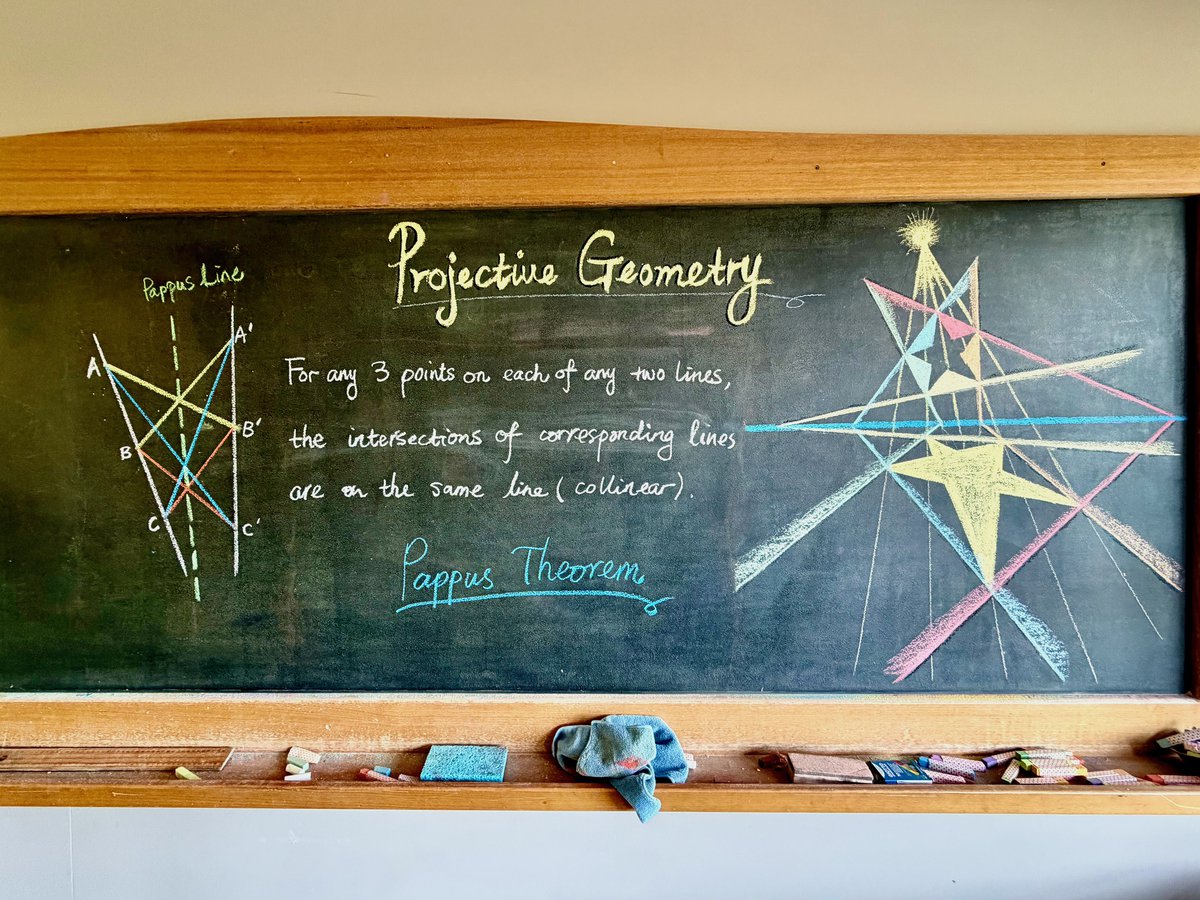 Projective Geometry
Pappus Line
A
A'
B
B'
C
C'
For any 3 points on each of any two lines,
the intersections of corresponding lines
are on the same line (collinear).
Pappus Theorem